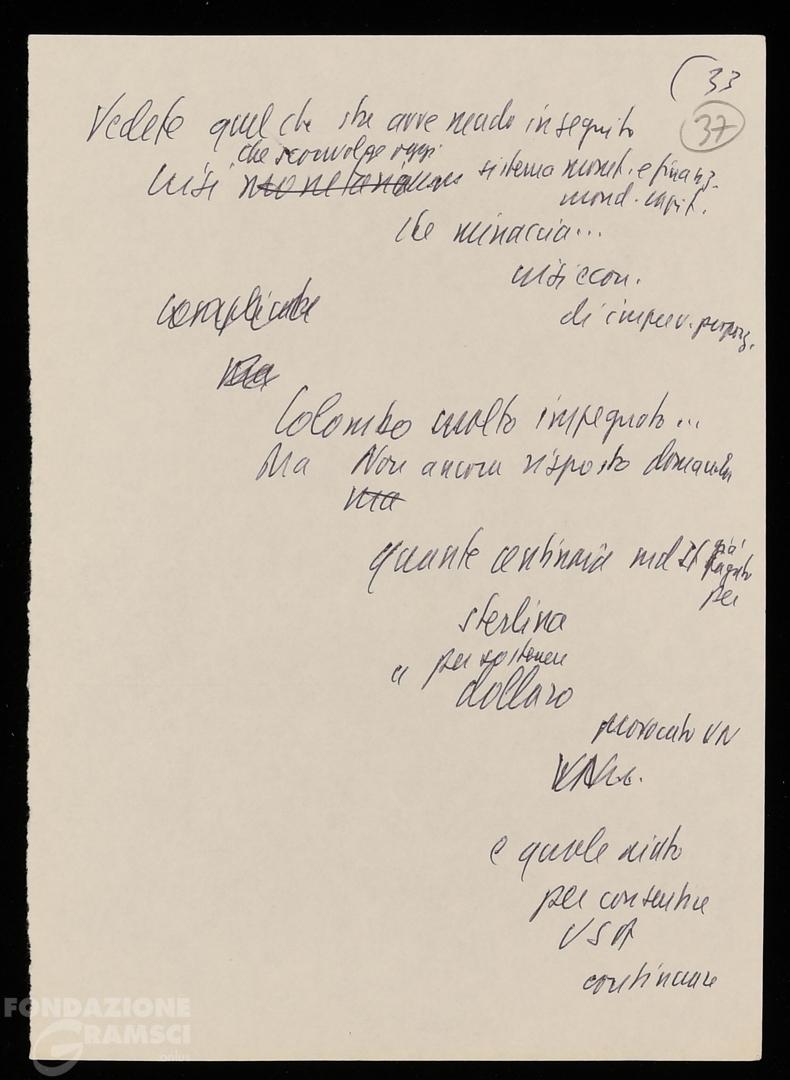 (33
37
Vedete quel che sta avvenendo in seguito
che sconvolge oggi
crisi monetaria sistema monet. e finanz.
mond. capit.
che minaccia...
crisi econ.
di imprev. proporz.
complicata
ma
Colombo molto impegnato...
Ma Non ancora risposto domanda
ma
quante centinaia mld già
pagato
per
sterlina
e per sostenere
dollaro
provocato VN
e quale aiuto
per consentire
USA
continuare
FONDAZIONE
GRAMSCI
onlus